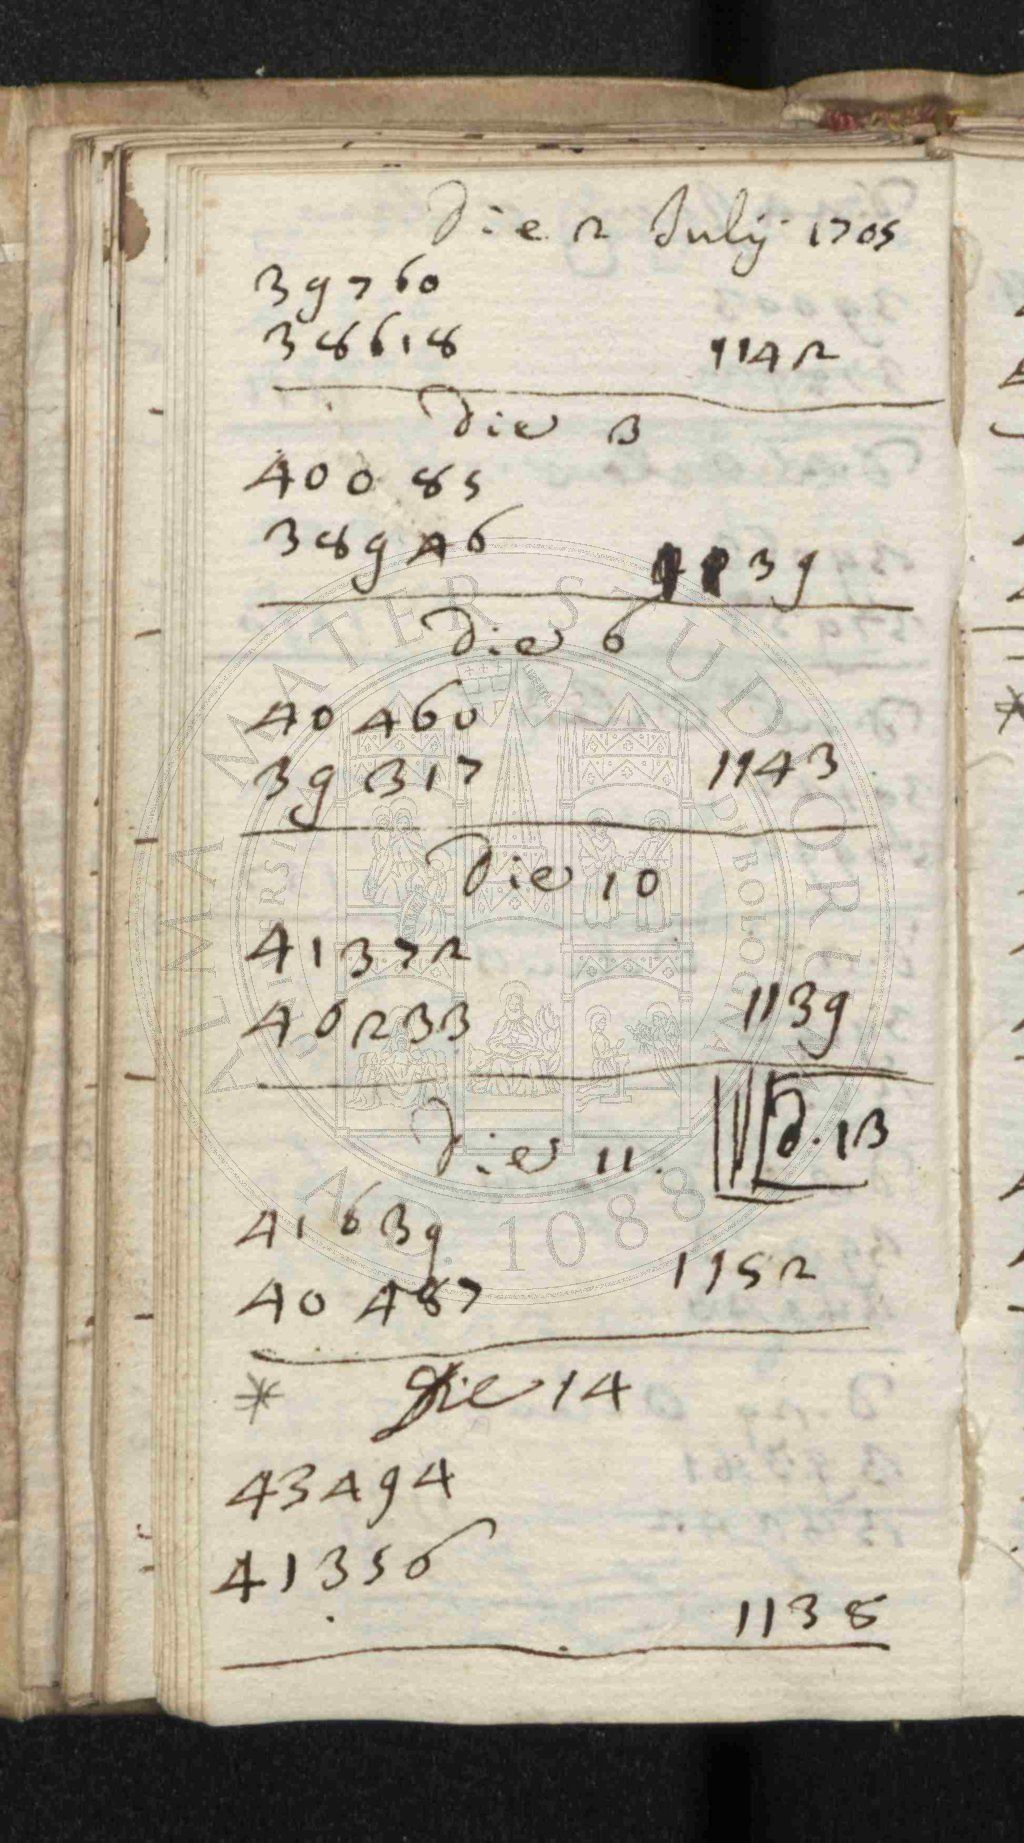 Die 2 July 1705
39760
38618 1142
Die 3
40085
38946 1139
Die 6
40460
39317 1143
Die 10
41372
40233 1139
Die 11. d. 13
41639
40487 1152
* Die 14
43494
41356
1138
ALMA MATER STUDIORUM
A.D. 1088